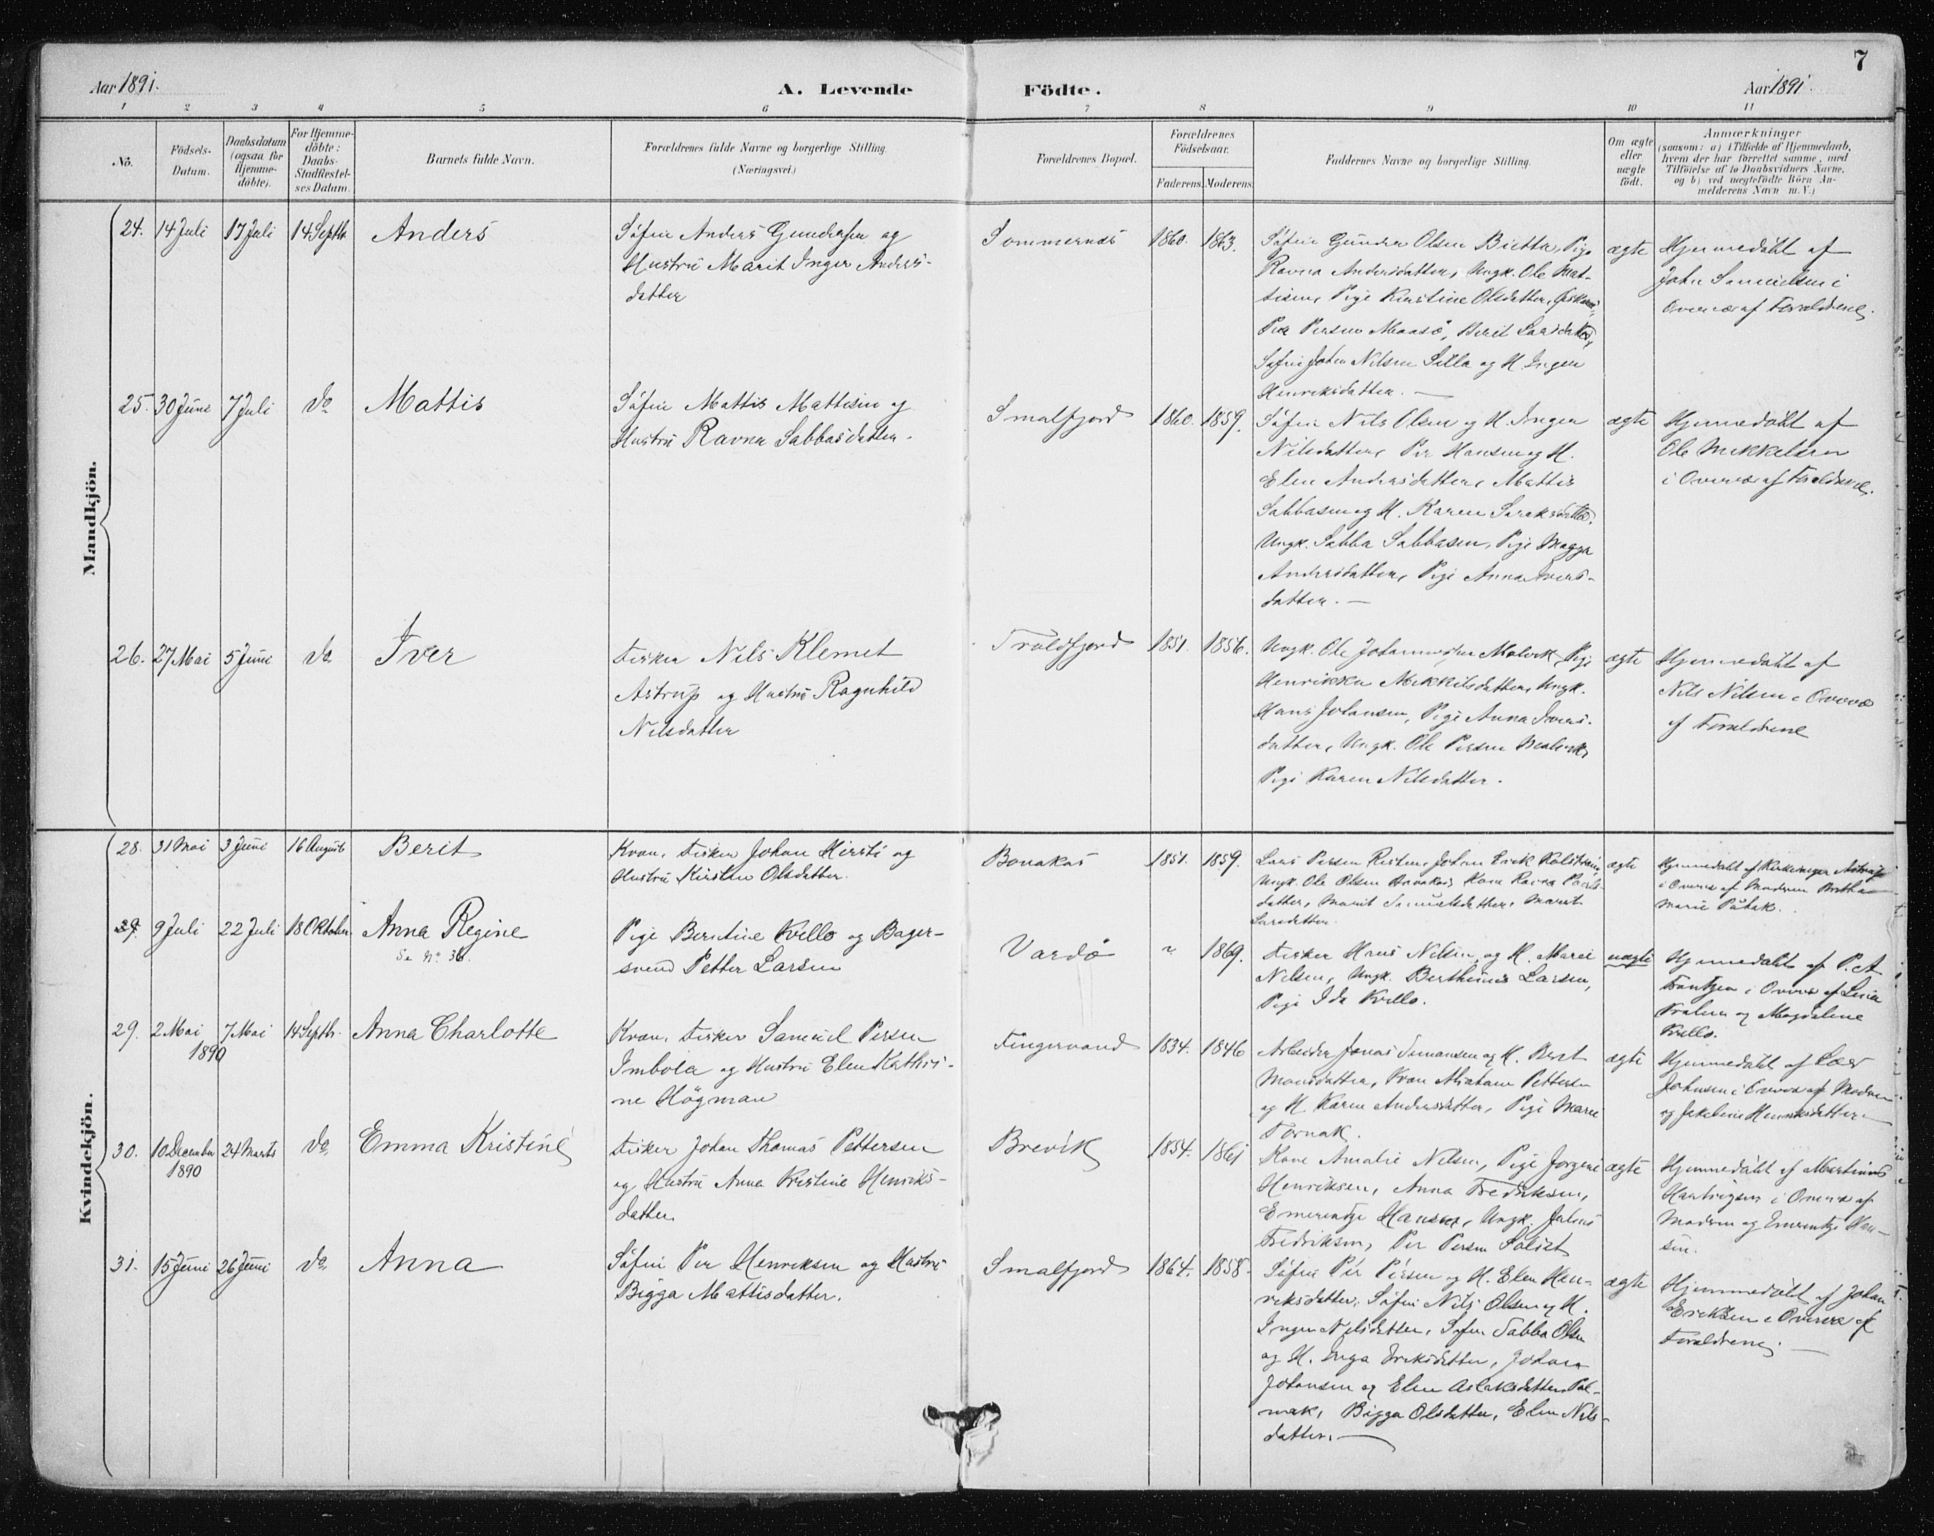 Aar 1891.
A. Levende
Födte.
Aar 1891.
7
1 2 3 4 5 6 7 8 9 10 11
No.
Födsels-
Datum.
Daabsdatum
(ogsaa for
Hjemme-
döbte).
For Hjemme-
döbte:
Daabs-
Stadfæstel-
ses Datum.
Barnets fulde Navn.
Forældrenes fulde Navne og borgerlige Stilling.
(Næringsvei.)
Forældrenes Bopæl.
Forældrenes
Födselsaar.
Faderens. Moderens.
Faddernes Navne og borgerlige Stilling.
Om ægte
eller
uægte
födt.
Anmærkninger
(saasom: a) i Tilfælde af Hjemmedaab,
hvem der har forrettet samme, med
Tilföielse af to Daabsvidners Navne,
og b) ved uægtefödte Börn An-
melderens Navn m. V.)
Mandkjön.
24. 14 Juli 17 Juli 14 Septbr Anders
Søfin Anders Gundersen og
Hustru Marit Inger Anders-
datter
Sommernæs 1860. 1863.
Søfin Gunder Olsen Bietta, Pige
Ravna Andersdatter, Ungk. Ole Mat-
tisen, Pige Kirstine Olsdatter,
Per Persen Maasø, Berit Larsdatter,
Søfin Johan Nilsen Silla og H. Inger
Henriksdatter. —
ægte
Hjemmedøbt af
John Samuelsen i
Overvær af Forældrene.
25. 30 Juni 7 Juli do Mattis
Søfin Mattis Mattisen og
Hustru Ravna Sabbasdatter.
Smalfjord 1860. 1859.
Søfin Nils Olsen og H. Inger
Nilsdatter, Per Hansen og H.
Elen Andersdatter, Mattis
Sabbasen og H. Karen
Ungk. Sabba Sabbasen, Pige Magga
Andersdatter, Pige Anna Ivers-
datter. —
ægte
Hjemmedøbt af
Ole Mikkelsen
i Overvær af Forældrene.
26. 27 Mai 5 Juni do Iver
Fisker Nils Klemet
Astrup og Hustru Ragnhild
Nilsdatter
Troldfjord 1851. 1856.
Ungk. Ole Johannesen Malvik, Pige
Henrikka Mikkelsdatter, Ungk.
Hans Johansen, Pige Anna Ivers-
datter, Ungk. Ole Persen
Pige Karen Nilsdatter.
ægte
Hjemmedøbt af
Nils Nilsen i Overvær
af Forældrene
Kvindekjön.
28. 31 Mai 3 Juni 16 August Berit
Kvæn. Fisker Johan Hirsti og
Hustru Kirsten Olsdatter.
Bonakas 1851. 1859.
Lars Persen Risten, Johan Erik
Ungk. Ole Olsen Bonakas, Kone Ravna
datter, Marit Samuelsdatter, Marit
Larsdatter
ægte
Hjemmedøbt af Kirkesanger Astrup
i Overvær af Madam Bertha
Marie
29. 9 Juli 22 Juli 18 Oktober Anna Regine
Se No 36.
Pige Berntine Kvello og Bager-
svend Petter Larsen
Vardø " 1869.
Fisker Hans Nilsen og H. Marie
Nilsen, Ungk. Berthinius Larsen,
Pige Ida Kvello.
uægte
Hjemmedøbt af P. A
Frantzen i Overvær af
og Magdalene
Kvello.
29. 2 Mai 7 Mai 14 Septbr. Anna Charlotte
1890
Kvæn. Fisker Samuel Persen
Imbola og Hustru Elen Kathri-
ne Högman
Tingervand 1834. 1846
Arbeider Jonas Simonsen og H. Berit
Monsdatter, Kvæn Abraham Pettersen
og H. Karen Andersdatter, Pige Marie
Tornak.
ægte
Hjemmedøbt af Lær.
Johnsen i Overvær af Moderen
og Jakobine Henriksdatter
30. 10 December 24 Marts do Emma Kristine
1890
Fisker Johan Thomas Pettersen
og Hustru Anna Kristine Henriks-
datter
Brevik 1854. 1861
Kone Amalie Nilsen, Pige Jørgine
Henriksen, Anna Fredriksen,
Emerentze Hansen, Ungk. Julius
Fredriksen, Per Persen
ægte
Hjemmedøbt af Martinius
Hartvigsen i Overvær af
Moderen og Emerentze Han-
sen.
31. 15 Juni 26 Juni do Anna
Søfin Per Henriksen og Hustru
Bigga Mattisdatter.
Smalfjord 1864. 1858.
Søfin Per Persen og H. Elen Hen-
riksdatter, Søfin Nils Olsen og H.
Inger Nilsdatter, Søfin Sabba Olsen
og H. Inga Eriksdatter, Johan
Johansen og Elen Aslaksdatter Pol-
mak, Bigga Olsdatter, Elen Nils-
datter. —
ægte
Hjemmedøbt af Johan
Eriksen i Overvær af
Forældrene. —